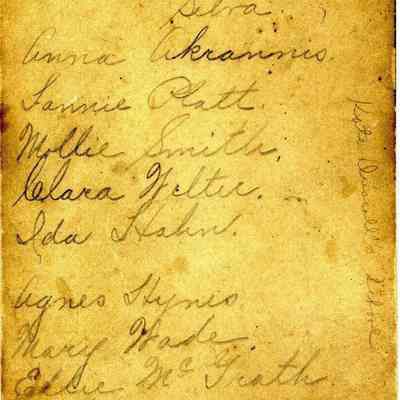 Selva.
Anna Akrannis.
Fannie Platt.
Mollie Smith.
Clara Wilter.
Ida Hahn.
Agnes Hynes
Mary Wade
Ellie Mc Grath.
Kate
above